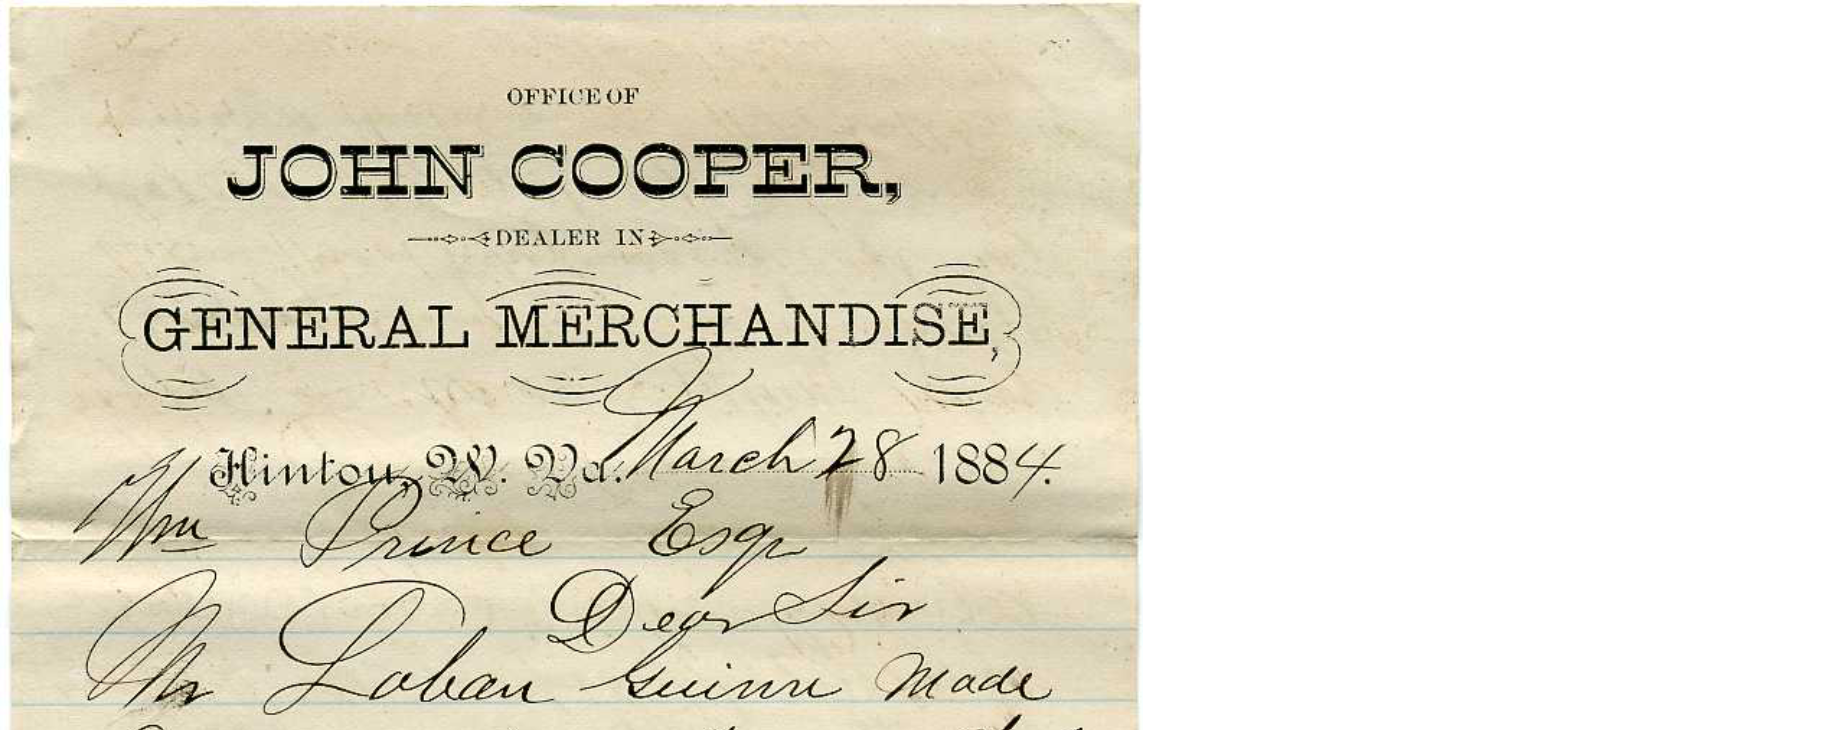 OFFICE OF
JOHN COOPER,
DEALER IN
GENERAL MERCHANDISE,
Hinton, W. Va. March 28 1884.
Wm Prince Esqr
Dear Sir
Mr Laban Guinn made